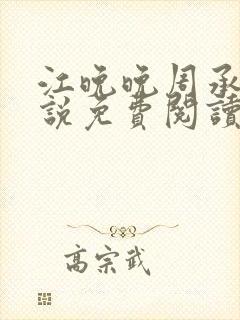 江晚晚周承
說免費閱讀
高宗武